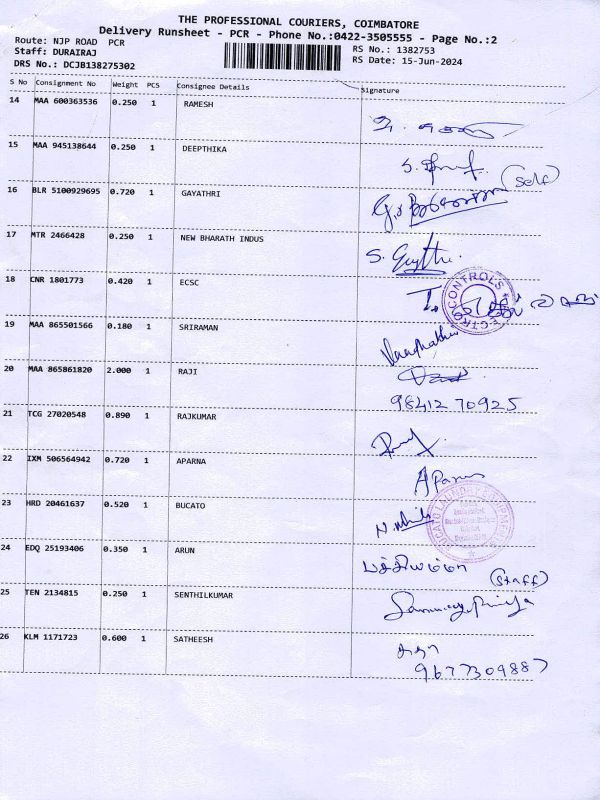 THE PROFESSIONAL COURIERS, COIMBATORE
Delivery Runsheet - PCR - Phone No.:0422-3505555 - Page No.:2
Route: NJP ROAD PCR
Staff: DURAIRAJ
DRS No.: DCJB138275302
RS No.: 1382753
RS Date: 15-Jun-2024
S No Consignment No Weight PCS Consignee Details Signature
14 MAA 600363536 0.250 1 RAMESH
15 MAA 945138644 0.250 1 DEEPTHIKA
(Self)
16 BLR 5100929695 0.720 1 GAYATHRI
17 MTR 2466428 0.250 1 NEW BHARATH INDUS
18 CNR 1801773 0.420 1 ECSC
CONTROLS
19 MAA 865501566 0.180 1 SRIRAMAN
20 MAA 865861820 2.000 1 RAJI
98412 70925
21 TCG 27020548 0.890 1 RAJKUMAR
22 IXM 506564942 0.720 1 APARNA
23 HRD 20461637 0.520 1 BUCATO
24 EDQ 25193406 0.350 1 ARUN
(Staff)
25 TEN 2134815 0.250 1 SENTHILKUMAR
26 KLM 1171723 0.600 1 SATHEESH
9677309887